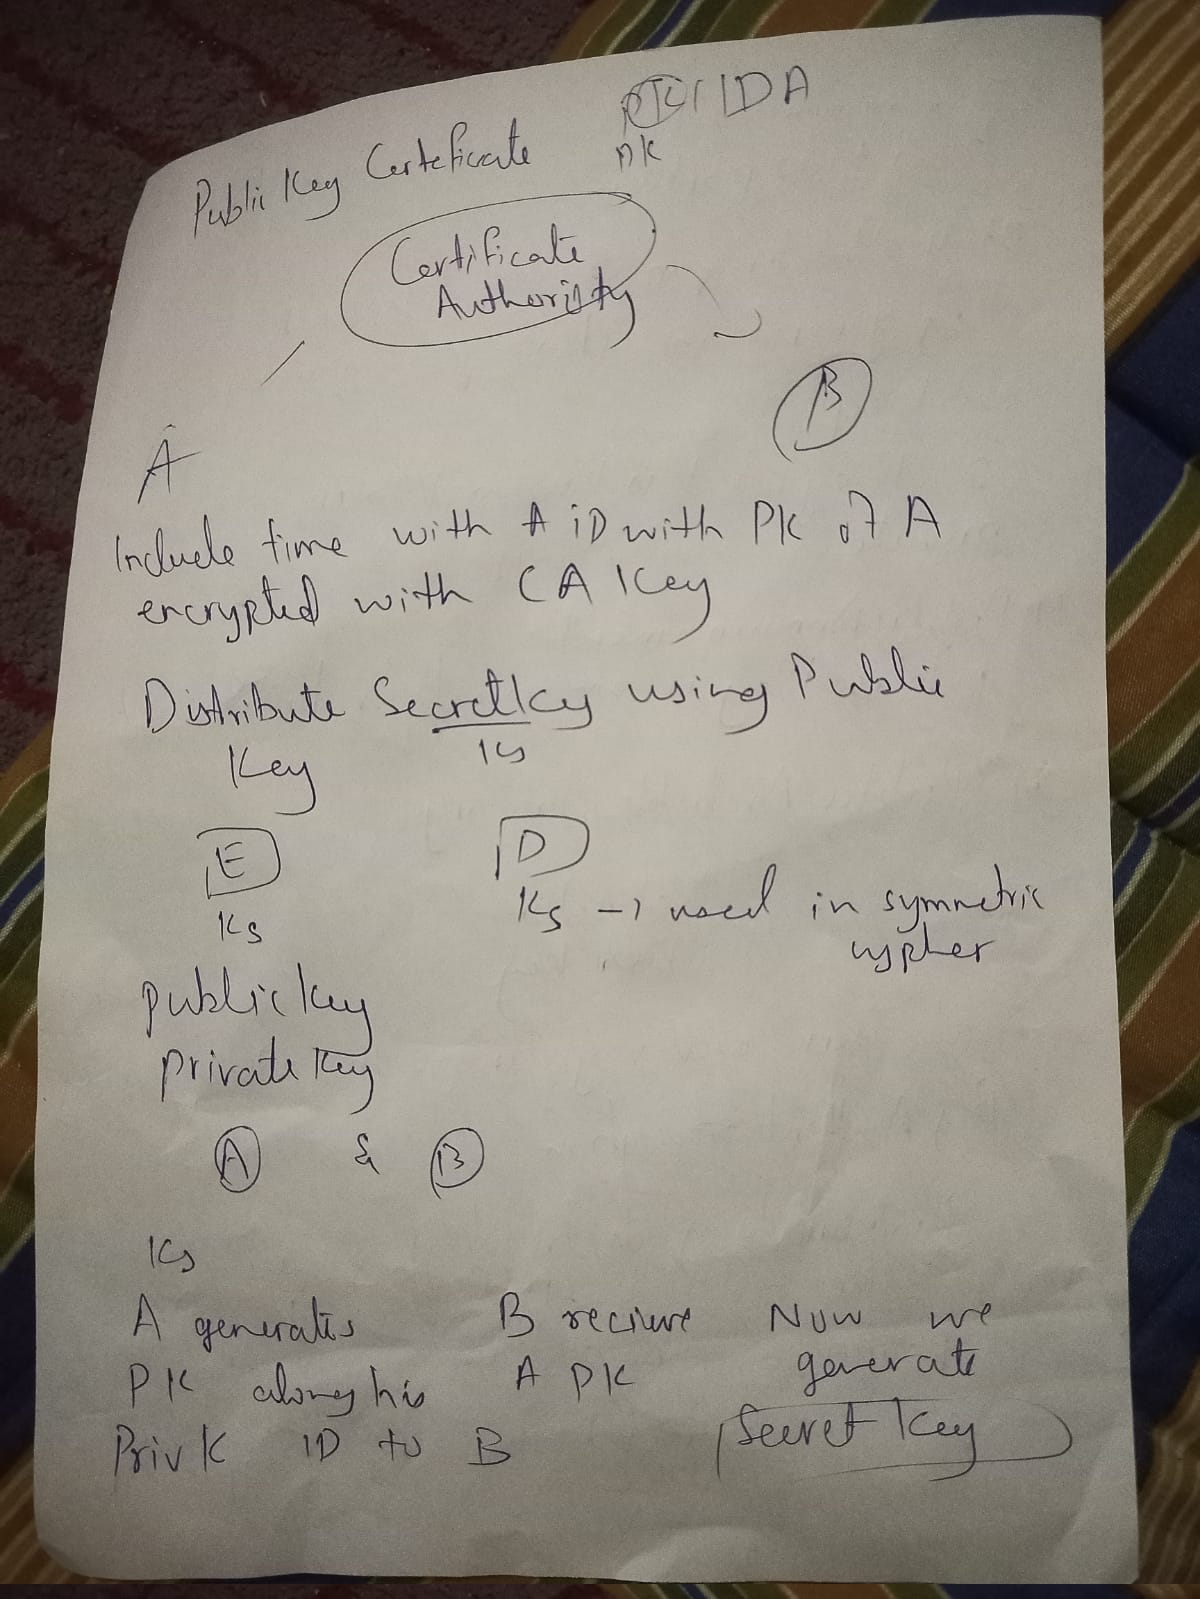 IDA
Public Key Certeficate PK
Certificate
Authority
B
A
Include time with A iD with PK of A
encrypted with CA Key
Distribute Secret Key using Public
Key Ks
E D
Ks Ks → used in symmetric
cypher
Public key
Private Key
A & B
Ks
A generates B recieve Now we
PK along his A PK generate
Priv K ID to B Secret Key